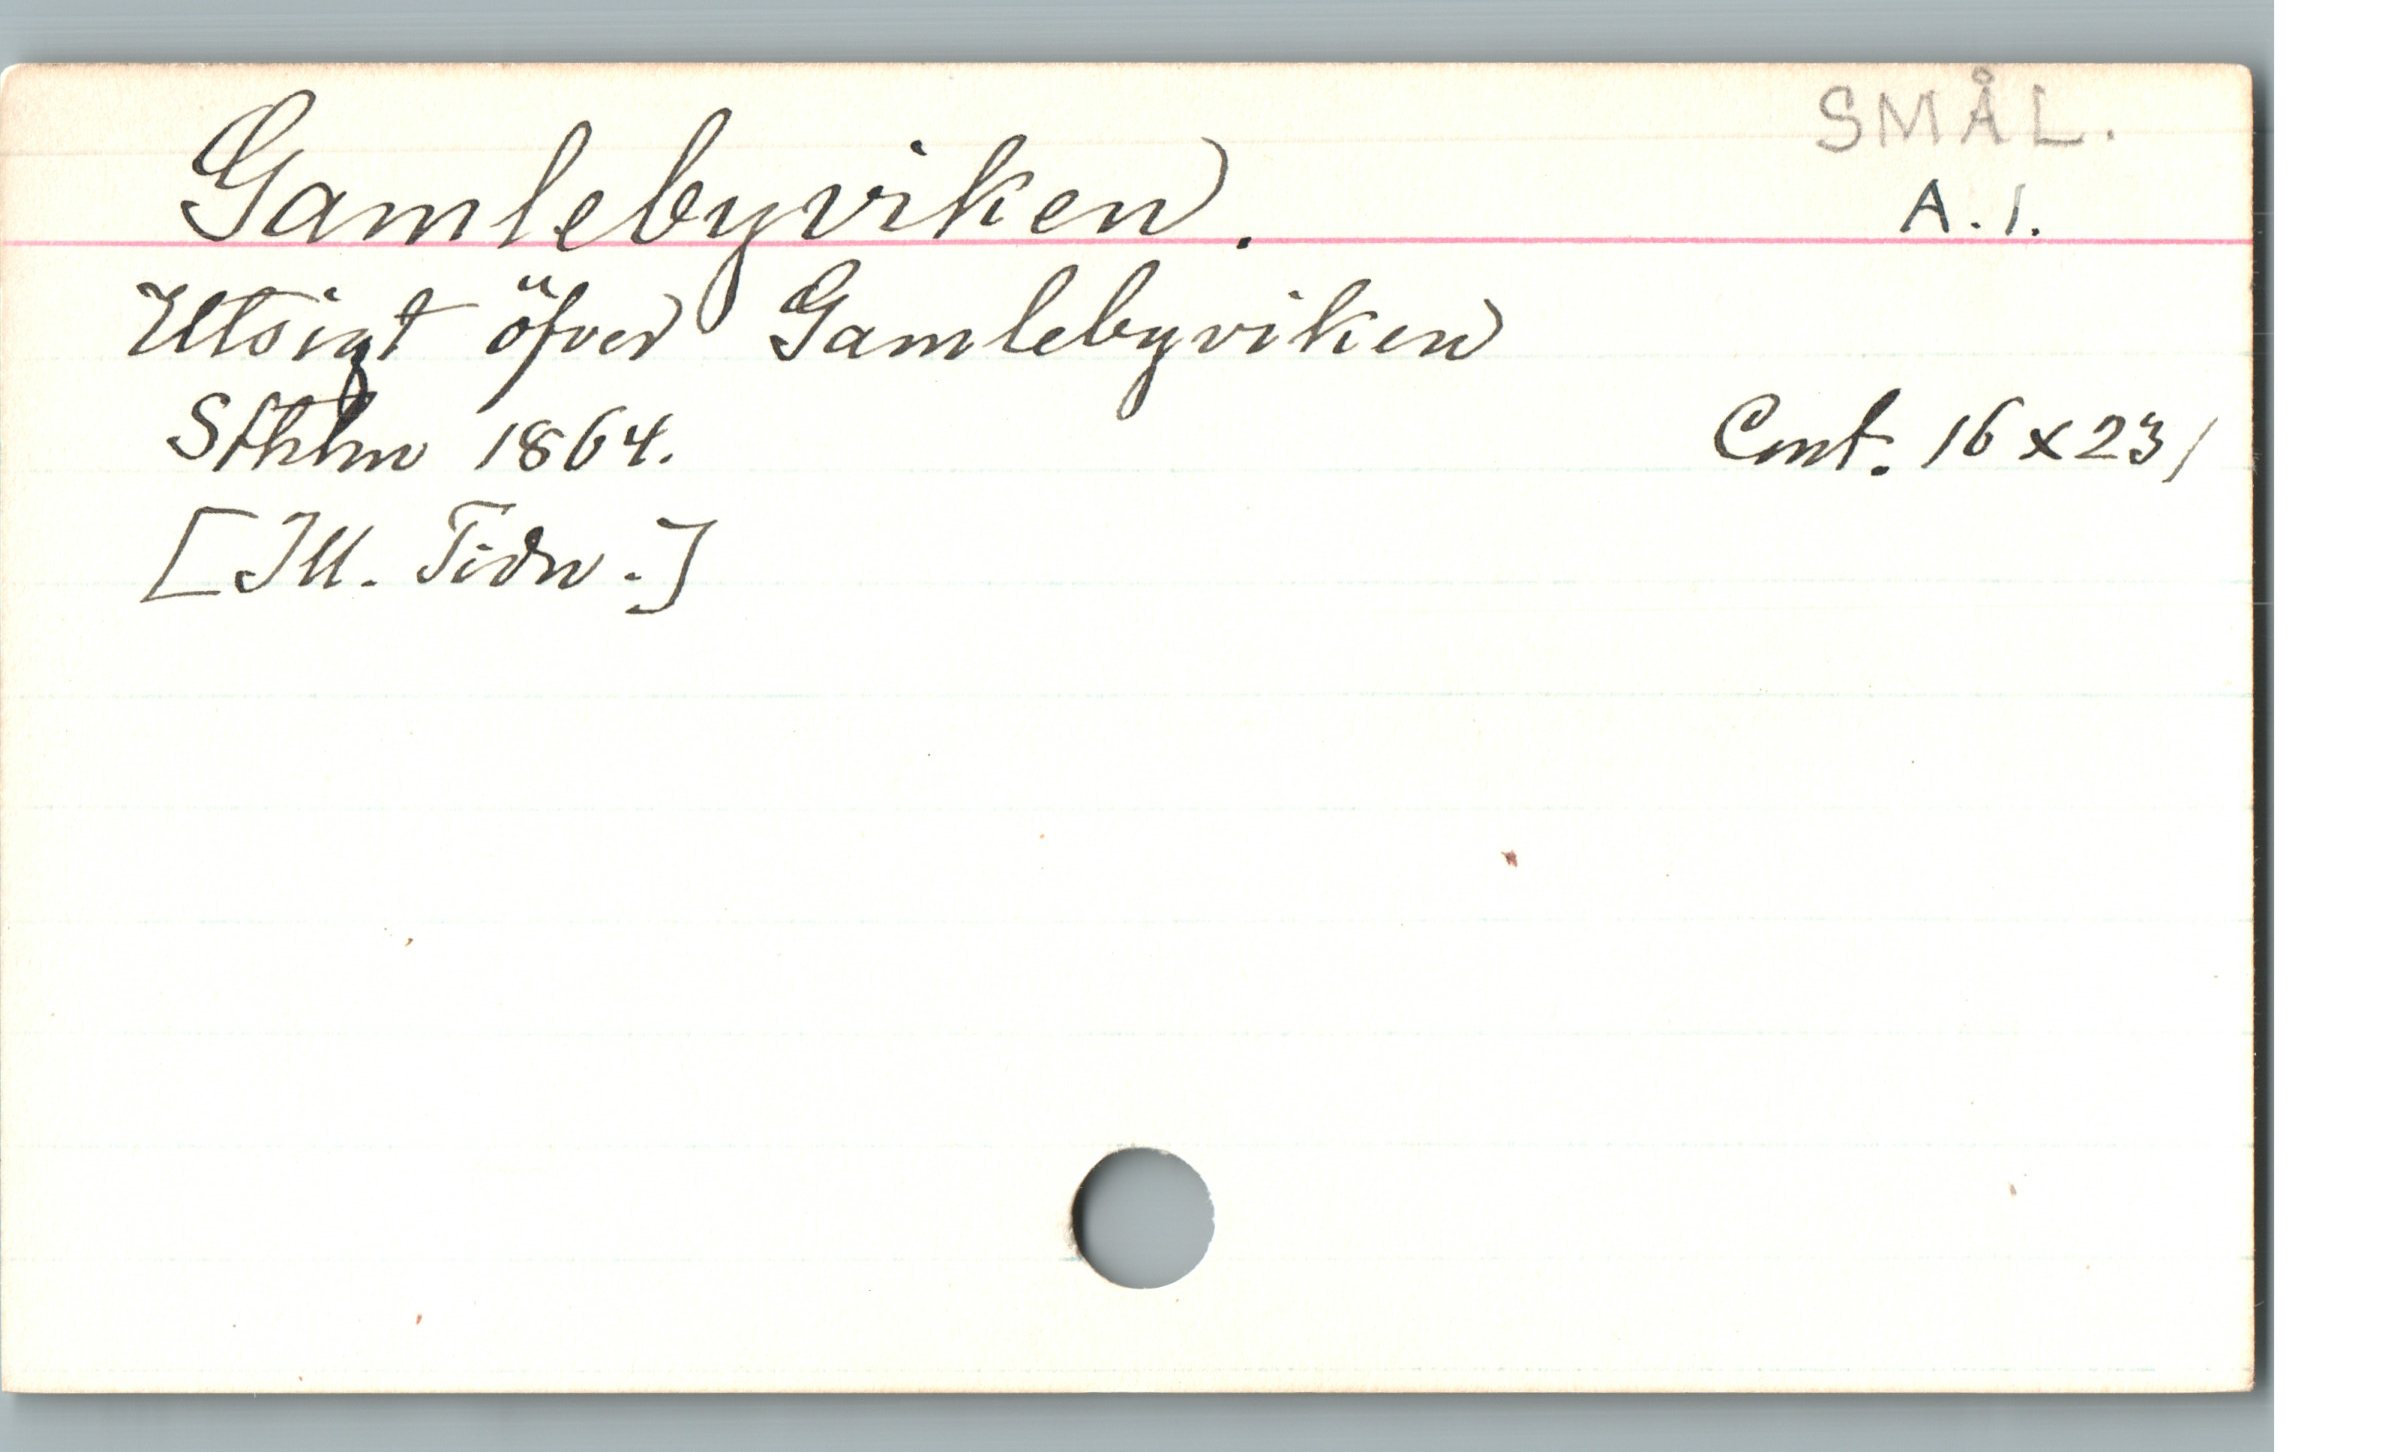 SMÅL.
Gamlebyviken.
A.1.
Utsigt öfver Gamlebyviken
Sthlm 1864.
Cmt. 16 x 23,
[Ill. Tidn.]